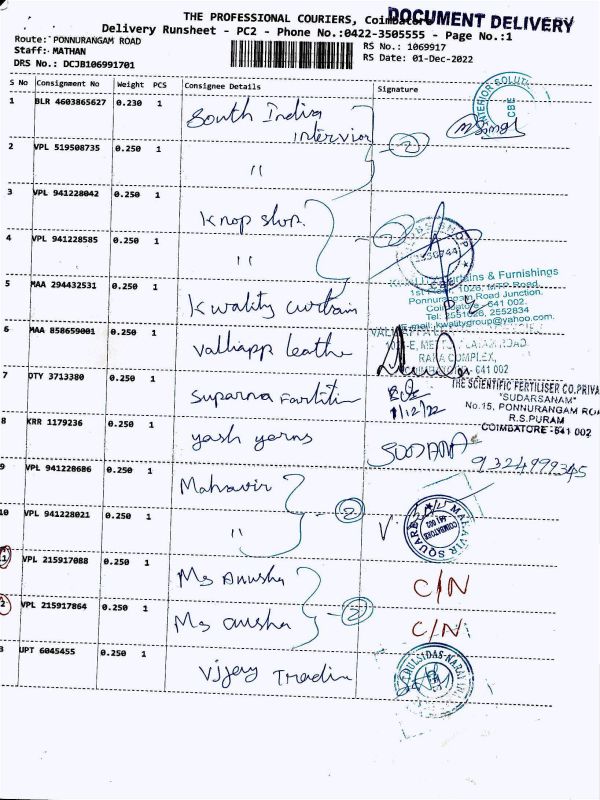 THE PROFESSIONAL COURIERS, Coimbatore
DOCUMENT DELIVERY
Delivery Runsheet - PC2 - Phone No.:0422-3505555 - Page No.:1
Route: PONNURANGAM ROAD
RS No.: 1069917
Staff: MATHAN
RS Date: 01-Dec-2022
DRS No.: DCJB106991701
S No Consignment No Weight PCS Consignee Details Signature
1 BLR 4603865627 0.230 1 South India
intervior 2
2 VPL 519508735 0.250 1 "
3 VPL 941228042 0.250 1 Knop shop. 2
4 VPL 941228585 0.250 1 "
5 MAA 294432531 0.250 1 Kwality curtain
Curtains & Furnishings
1st Floor, 1026, MTP Road,
Ponnurangam Road Junction,
641 002.
Tel: 2551626, 2552834
E.mail: kwalitygroup@yahoo.com.
6 MAA 858659001 0.250 1 Valliapp Leathe
RAJA COMPLEX,
COIMBATORE - 641 002
7 OTY 3713380 0.250 1 Suparna Fartiti
1/12/22
THE SCIENTIFIC FERTILISER CO.PRIVA
"SUDARSANAM"
No.15, PONNURANGAM ROA
R.S.PURAM
COIMBATORE -641 002
8 KRR 1179236 0.250 1 yash yarns
9324999345
9 VPL 941228686 0.250 1 Mahavir 2
10 VPL 941228021 0.250 1 "
MAHAVIR SQUARE
COIMBATORE
641 002
VPL 215917088 0.250 1 Ms Anusha C/N
2
VPL 215917864 0.250 1 Ms anusha C/N
3 UPT 6045455 0.250 1 Vijay Tradin